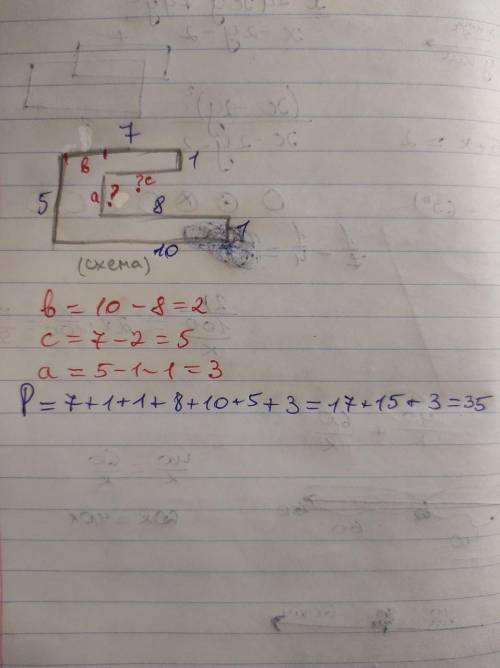 7
в
1
?с
а ?
5
8
1
10
(схема)
в = 10 - 8 = 2
с = 7 - 2 = 5
а = 5 - 1 - 1 = 3
P = 7 + 1 + 1 + 8 + 10 + 5 + 3 = 17 + 15 + 3 = 35